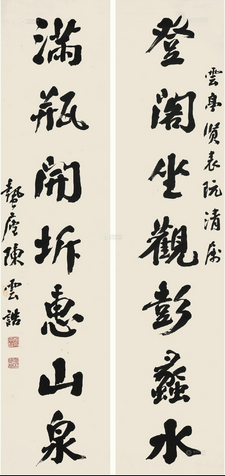 雲亭賢表阮清屬
登閣坐觀彭蠡水
滿瓶開坼惠山泉
蟄廬陳雲誥